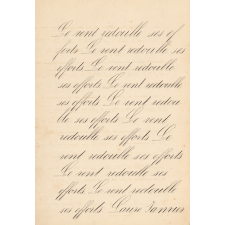 Le vent redouble ses ef
forts Le vent redouble ses
efforts Le vent redouble
ses efforts Le vent redouble
ses efforts Le vent redou
ble ses efforts Le vent
redouble ses efforts Le
vent redouble ses efforts
Le vent redouble ses
efforts Le vent redouble
ses efforts Laure